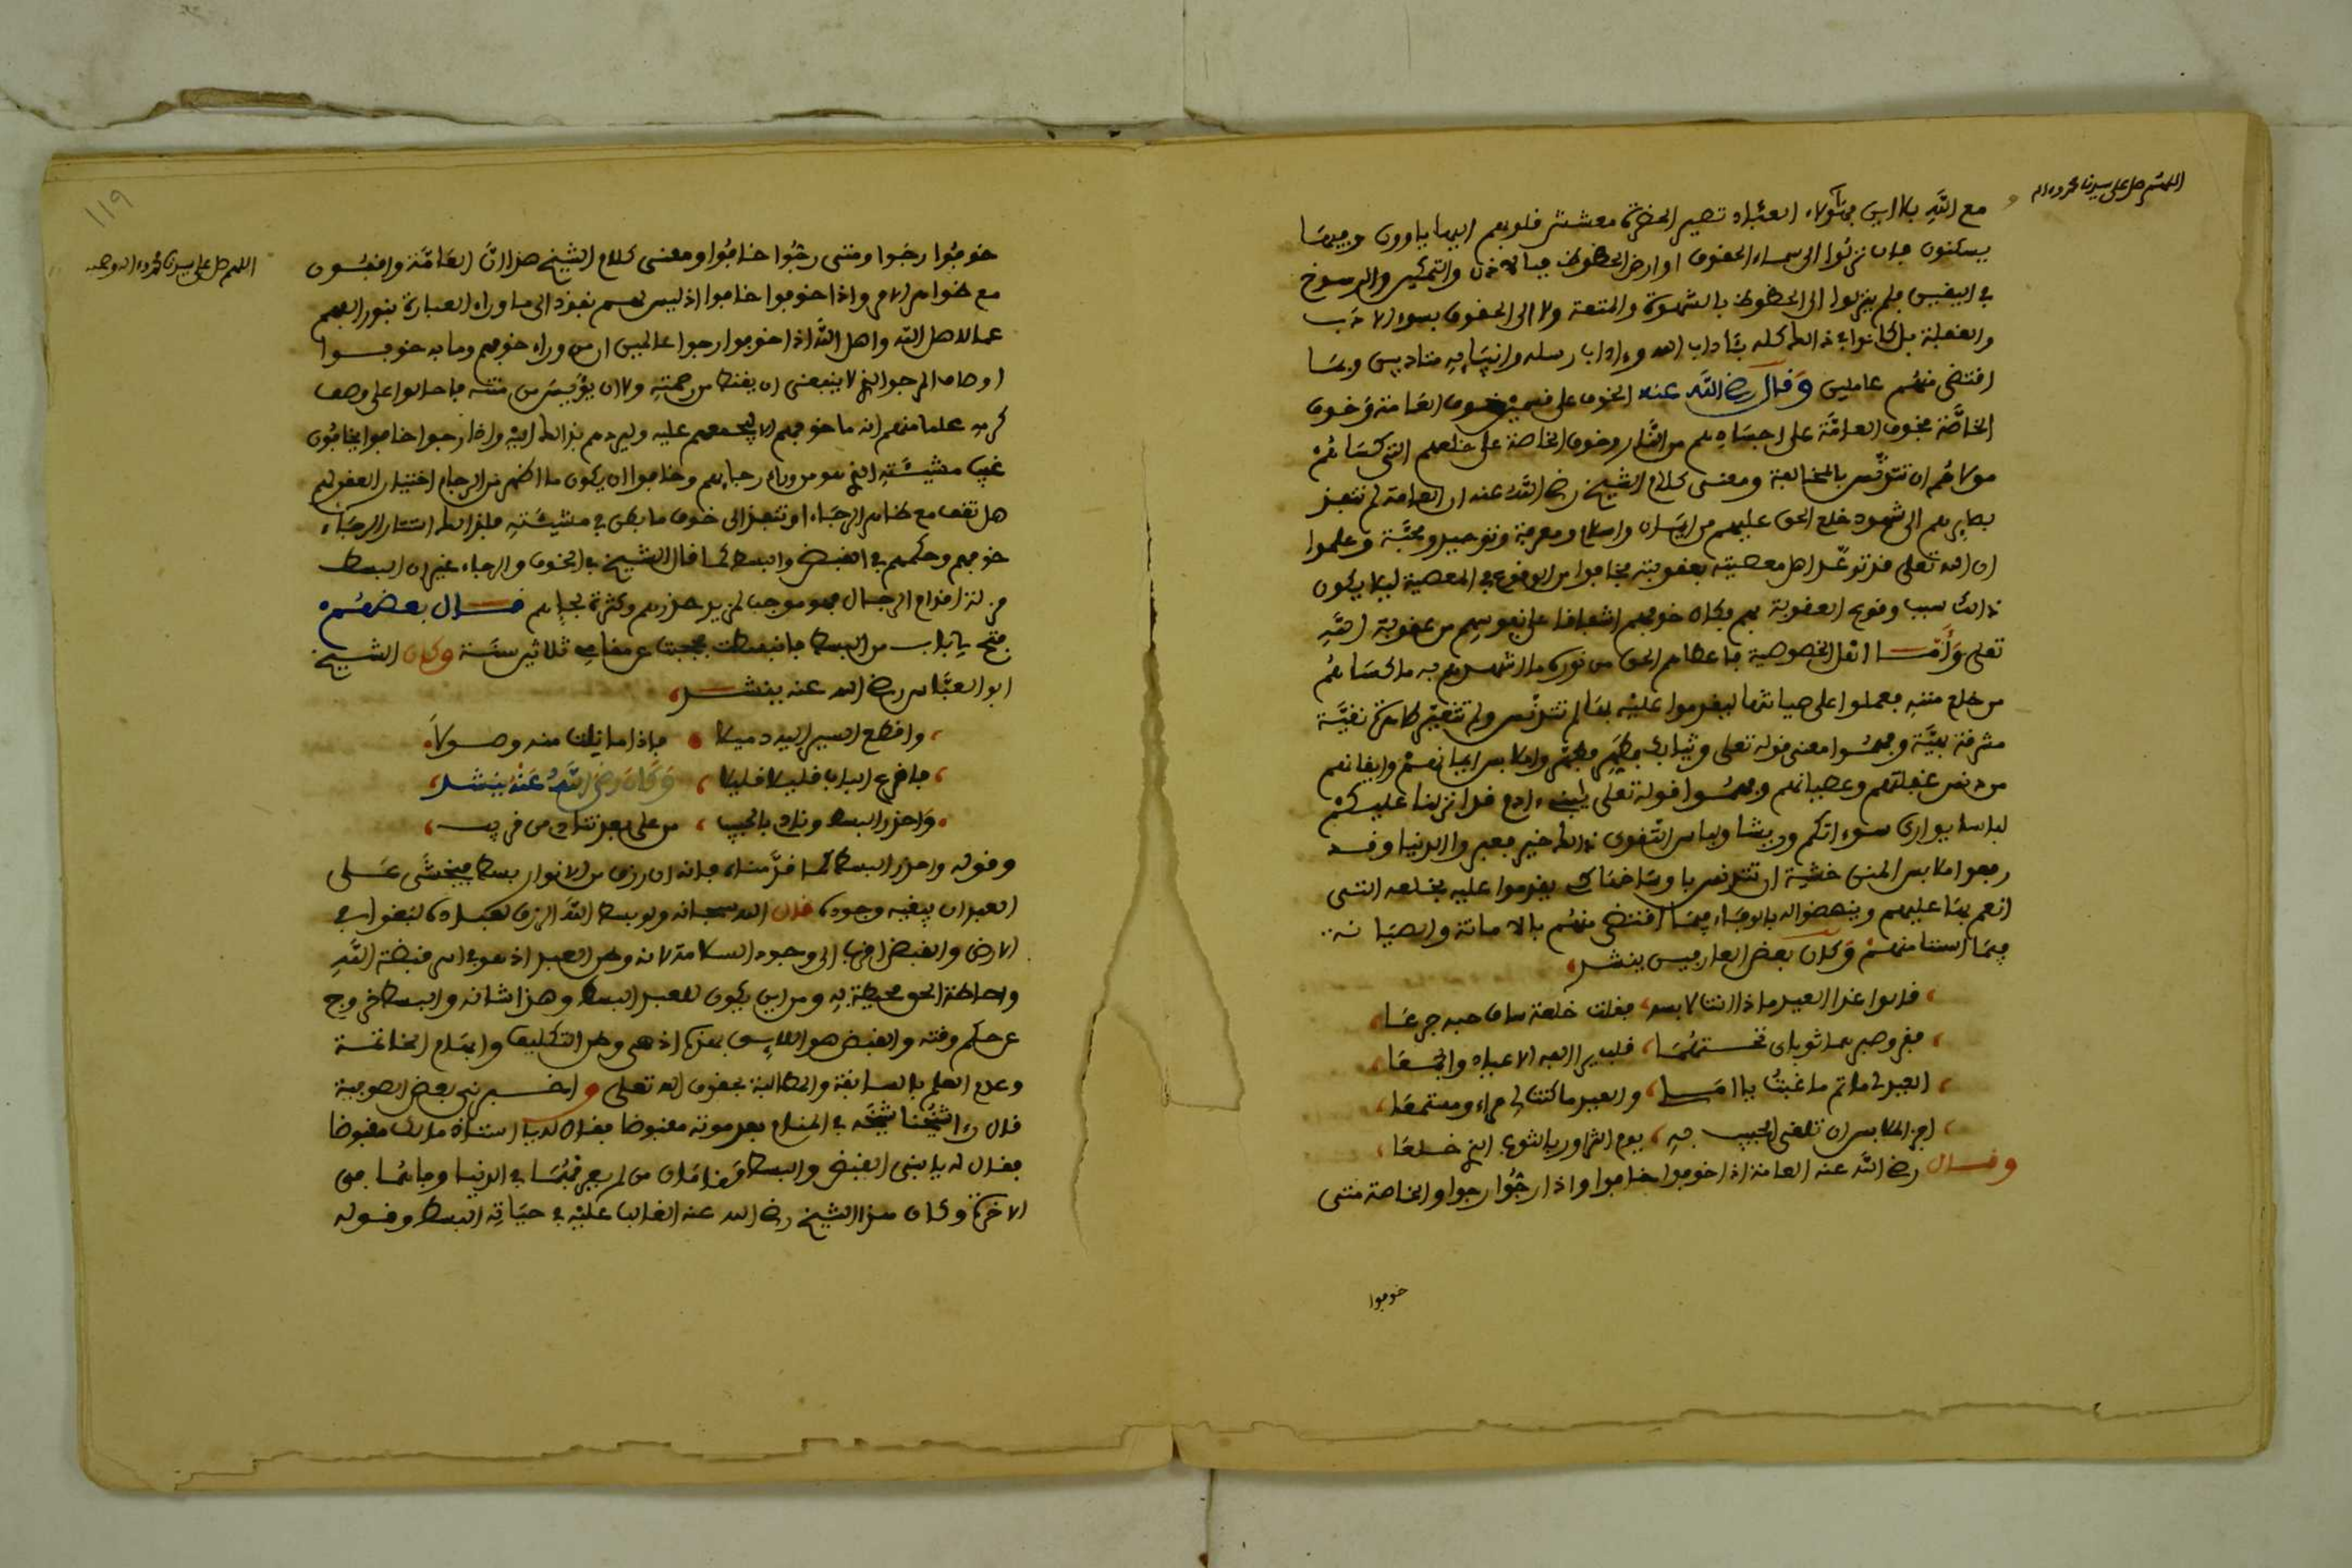 اللهم صل على سيدنا محمد وءاله
مع الله بلا اين فهؤلاء العباد تصير الحضرة معشش قلوبهم اليها ياوون وفيها
يسكنون فان نزلوا الى سماء الحقوق او ارض الحظوظ فبالاذن والتمكين والرسوخ
في اليقين فلم ينزلوا الى الحظوظ بالشهوة والمتعة ولا الى الحقوق بسوء الادب
والغفلة بل كانوا في ذالك كله بئاداب الله وءاداب رسله وانبيايه متادبين وبما
اقتضى منهم عاملين وقال رضي الله عنه الخوف على قسمين خوف العامة وخوف
الخاصة فخوف العامة على اجسادهم من النار وخوف الخاصة على خلعهم التي كساهم
مولاهم ان تتدنس بالمخالفة ومعنى كلام الشيخ رضي الله عنه ان العامة لم تنفذ
بصايرهم الى شهود خلع الحق عليهم من ايمان واسلام ومعرفة وتوحيد ومحبة وعلموا
ان الله تعلى قد توعد اهل معصيته بعقوبته فخافوا من الوقوع في المعصية ليلا يكون
ذالك سبب وقوع العقوبة بهم فكان خوفهم اشفاقا على نفوسهم من عقوبة الله
تعلى وأما اهل الخصوصية فاعطاهم الحق من نوره ما اشهدهم به ما كساهم
من خلع مننه فعملوا على صيانتها ليقدموا عليه بها لم تتدنس ولم تتغير طاهرة نقية
مشرقة بهية وفهموا معنى قوله تعلى وثيابك فطهر فطهروا ملابس ايمانهم وايقانهم
من دنس غفلتهم وعصيانهم وفهموا قوله تعلى يبني ءادم قد انزلنا عليكم
لباسا يوارى سوءاتكم وريشا ولباس التقوى ذالك خير فعبروا الدنيا وقد
رفعوا ملابس المنن خشية ان تتدنس باوساخها كي يقدموا عليه بخلعه التي
انعم بها عليهم وينهضوا له بالوفاء فيما اقتضى منهم بالامانة والصيانة
فيما استامنهم وكان بعض العارفين ينشد
قالوا غدا العيد ماذا انت لابسه فقلت خلعة ساق حبه جرعا
فقر وصبر هما ثوباي تحتهما قلب يرى الفه الاعياد والجمعا
العيد لي ماتم ما غبت يا املي والعيد ما كنت لي مرءا ومستمعا
احرى الملابس ان تلقى الحبيب به يوم التزاور بالثوب الذي خلعا
وقال رضي الله عنه العامة اذا خوفوا خافوا واذا رجوا رجوا والخاصة متى
خوفوا
١١٩
اللهم صل على سيدنا محمد وءاله وصحبه
خوفوا رجوا ومتى رجوا خافوا ومعنى كلام الشيخ هذا ان العامة واقفون
مع ظواهر الامر واذا خوفوا خافوا اذ ليس لهم نفوذ الى ما وراء العبارة بنور الفهم
كما لاهل الله واهل الله اذا خوفوا رجوا عالمين ان من وراء خوفهم وما به خوفوا
اوصاف المرجو الذي لا ينبغي ان يقنط من رحمته ولا ان يؤيس من منته فاحالوا على وصف
كرمه علما منهم انه ما خوفهم الا ليجمعهم عليه وليردهم بذالك اليه واذا رجوا خافوا يخافون
غيب مشيئته الذي هو من وراء رجايهم وخافوا ان يكون ما اظهر من الرجاء اختبارا لعقولهم
هل تقف مع ظاهر الرجاء او تنفذ الى خوف ما بطن في مشيئته فلذالك استثار الرجاء
خوفهم وحكمهم في القبض والبسط كما قال الشيخ في الخوف والرجاء غير ان البسط
مزلة اقدام الرجال فهو موجب لمزيد حذرهم وكثرة لجإهم قال بعضهم
فتح باب من البسط فانبسطت فحجبت عن مقامي ثلاثين سنة وكان الشيخ
ابو العباس رضي الله عنه ينشد
واقطع السير اليه دميلا فاذا ما نلت منه وصولا
فاقرع الباب قليلا قليلا وكان رضي الله عنه ينشد
واحذر البسط وناد بالحبيب من على بعد تناد من قريب
وقوله واحذر البسط كما قدمناه فانه ان رزق من الانوار بسط فيخشى على
العبد ان يبغيه وجوده قال الله سبحانه ولو بسط الله الرزق لعباده لبغوا في
الارض والقبض اقرب الى وجود السلامة لانه وطن العبد اذ هو في اسر قبضة الله
واحاطة الحق محيطة به ومن اين يكون للعبد البسط وهذا شانه والبسط خروج
عن حكم وقته والقبض هو اللايق بهذه اذ هي وطن التكليف وابهام الخاتمة
وعدم العلم بالسابقة والمطالبة بحقوق الله تعلى واخبرني بعض الصوفية
قال رءا شيخنا شيخه في المنام بعد موته مقبوضا فقال له يا استاذ مالك مقبوضا
فقال له يا بني القبض والبسط مقامان من لم يوفهما في الدنيا وفاهما في
الاخرة وكان هذا الشيخ رضي الله عنه الغالب عليه في حياته البسط وقوله